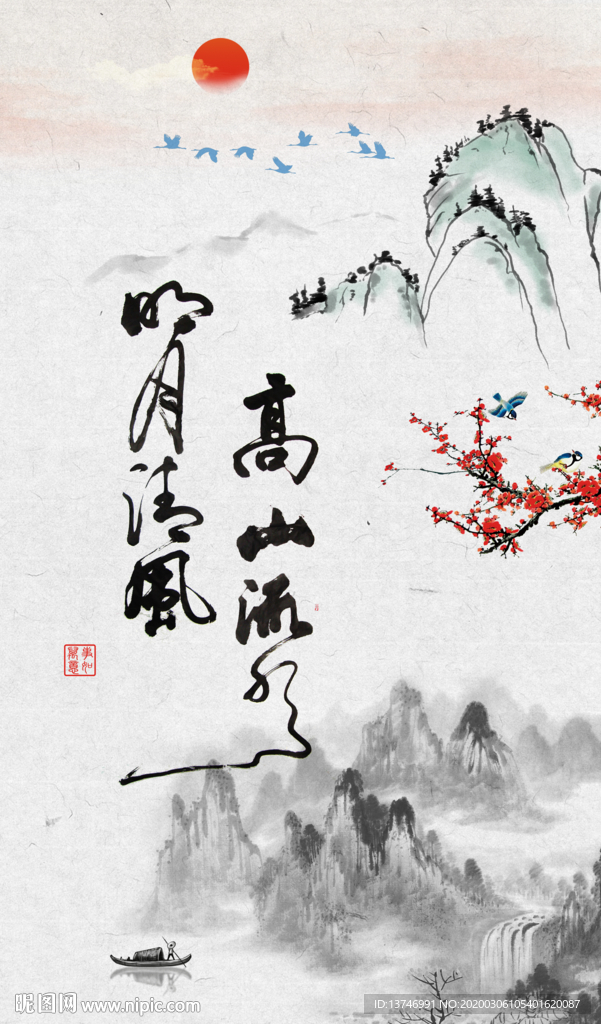 高山流水
明月清风
万事如意
昵图网 www.nipic.com
ID:13746991 NO:20200306105401620087